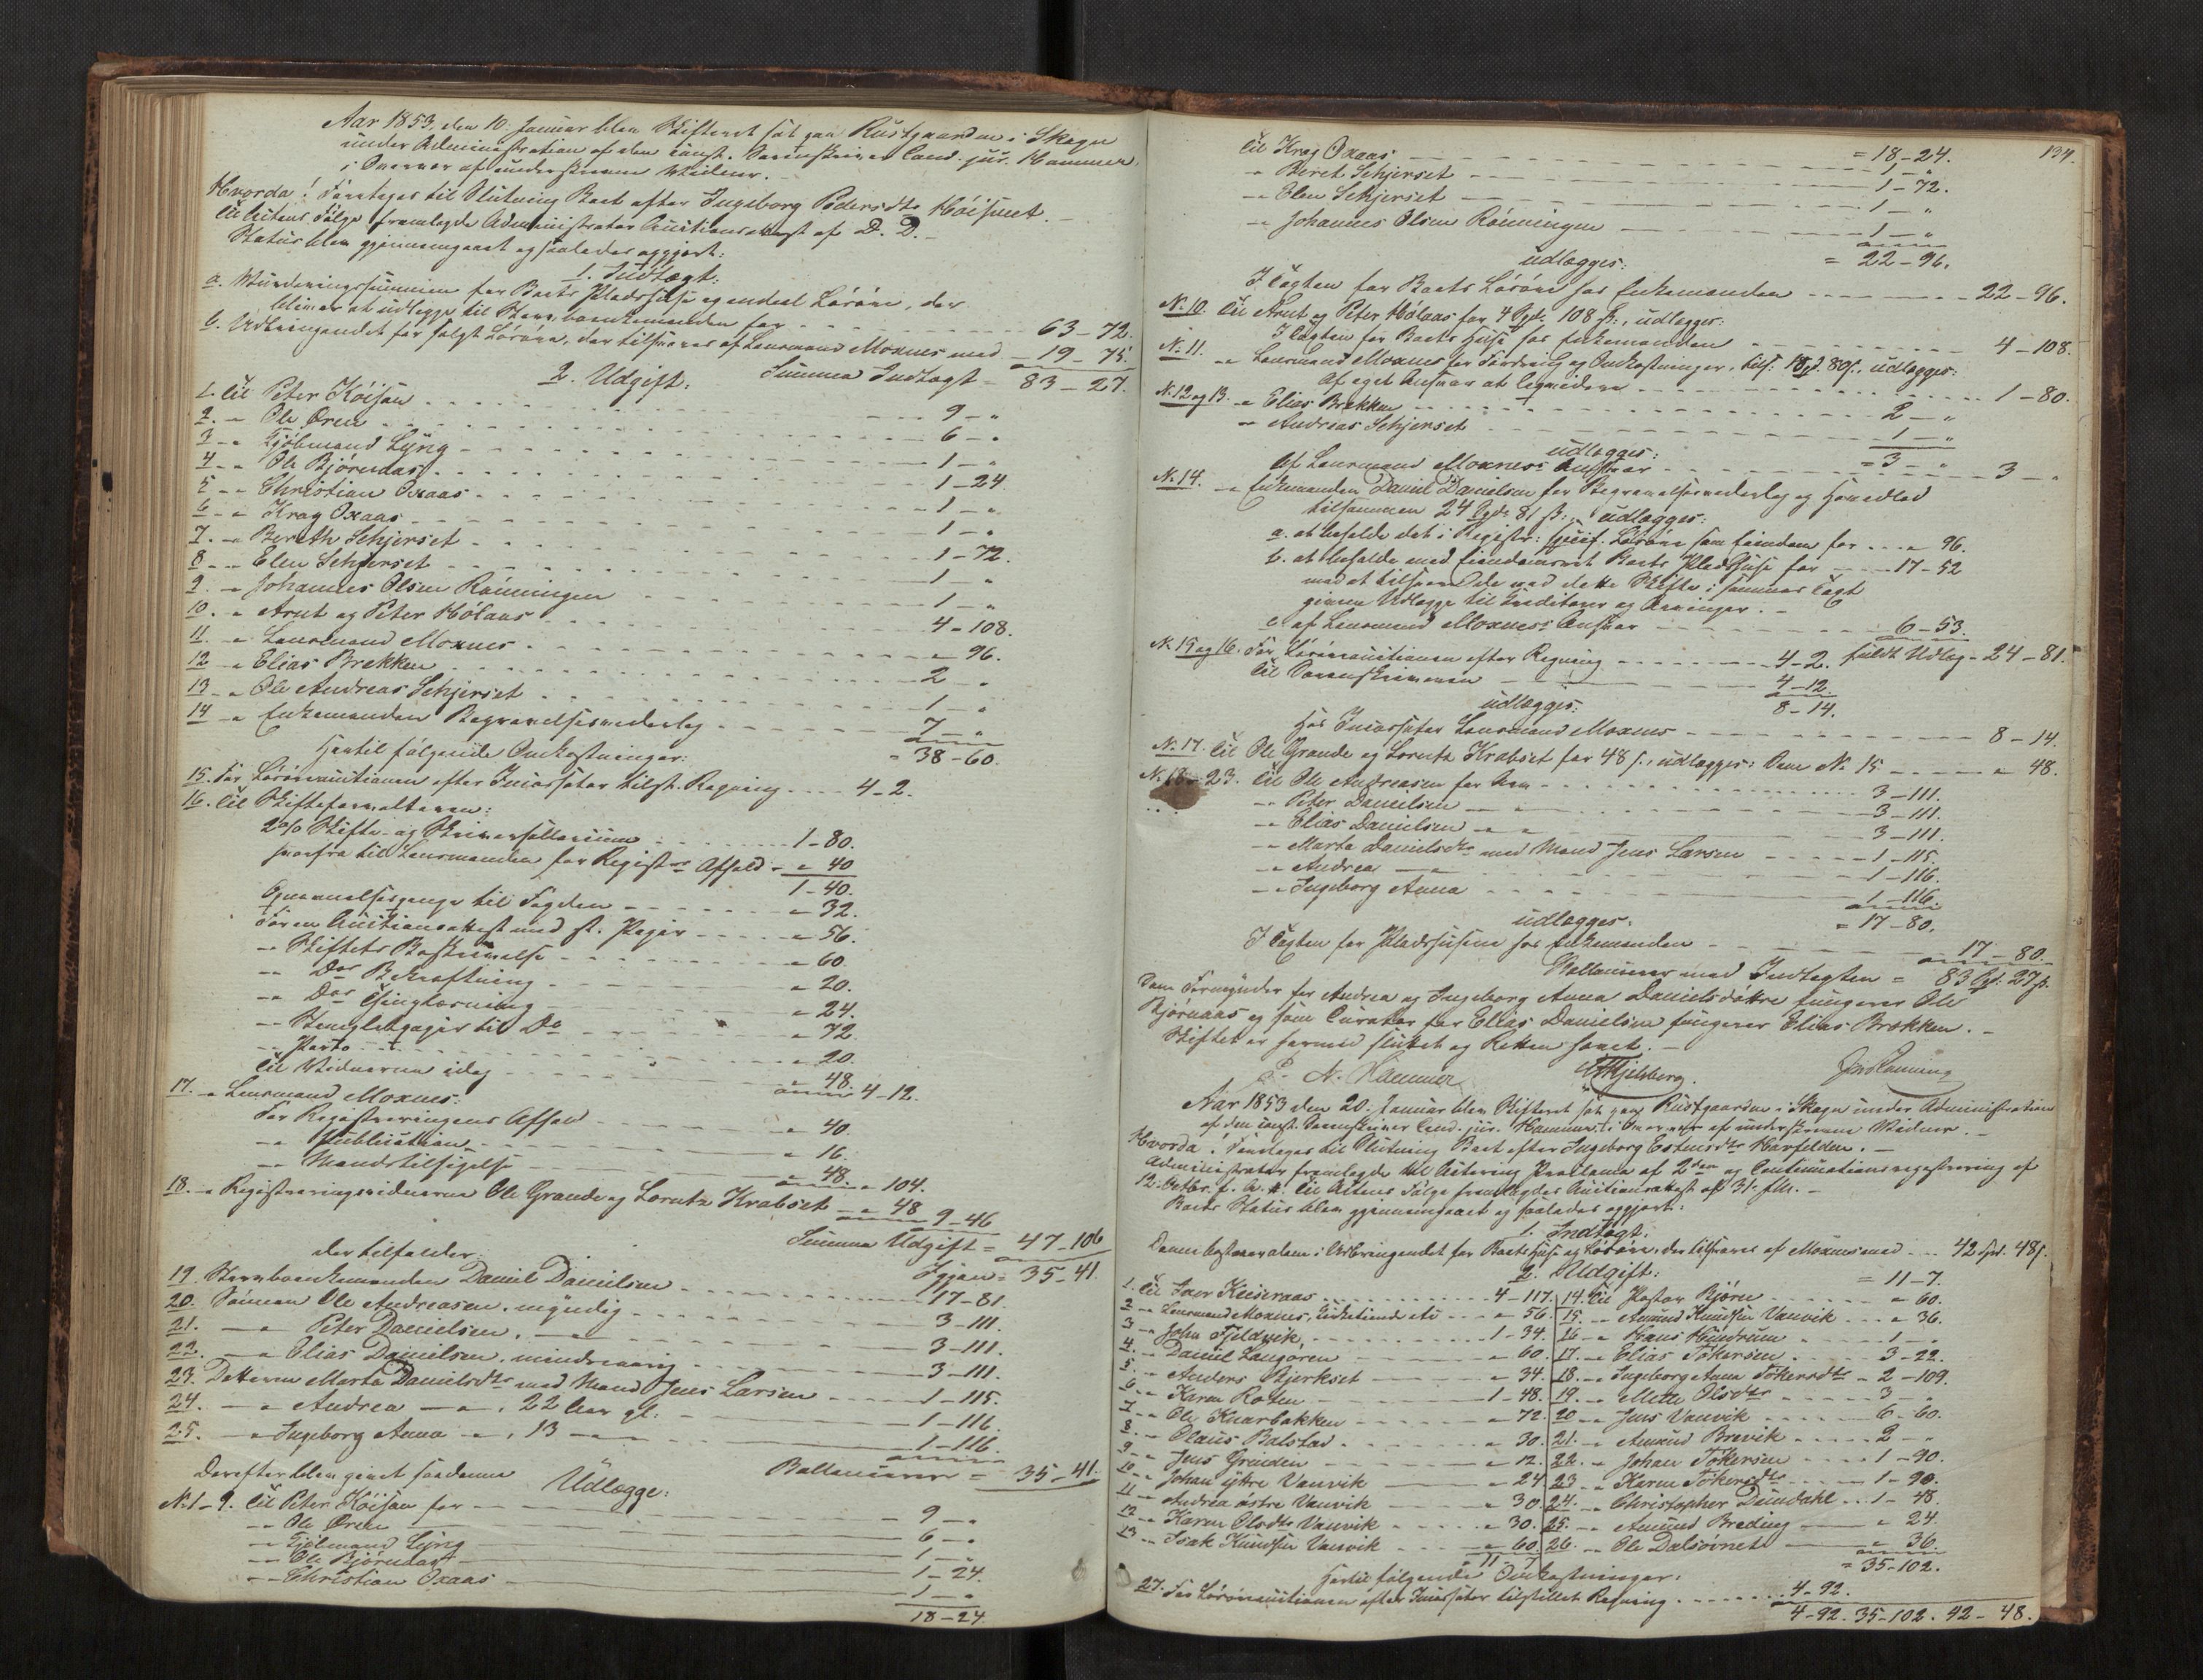 Aar 1853, den 10. Januar blev Skifteret sat paa Rustgaarden i Skogn
under Administration af den const. Sorenskriver Cand. jur. Hammer,
i Overvær af underskrevne Vidner.
Hvorda! Foretoges til Slutning Boet efter Ingeborg Pedersdtr
Til Actens Følge fremlagde Administrator Auctionsattest af D. D.
Status blev gjennemgaaet og saaledes opgjort:
1. Indtægt:
a. Vurderingssummen for Boets Pladshuse og endeel Løsøre, der
bliver at udlægge til Stervboenkemanden for 63-72.
b. Udbringendet for solgt Løsøre, der tilsvares af Lensmand Moxnes med 19-75.
Summa Indtægt = 83-27.
2. Udgift:
1. Til Peter 9-"
2. -"- Ole Øren 6-"
3. -"- 1-"
4. -"- Ole Bjørnaas 1-24
5. -"- Christian Oxaas 1-"
6. -"- Krag Oxaas 1-"
7. -"- Bereth Schjerset 1-72.
8. -"- Elen Schjerset 1-"
9. -"- Johannes Olsen Rønningen 1-"
10. -"- Arnt og Peter Holaas 4-108.
11. -"- Lensmand Moxnes " 96.
12. -"- Elias Brekken 2-"
13. -"- Ole Andreas Schjerset 1-"
14. -"- Enkemanden Begravelsesvederlag 7-"
= 38-60.
Hertil følgende Omkostninger:
15. For Løsøreauctionen efter Incassator tilst. Regning 4-2.
16. Til Skifteforvalteren:
2% Skifte- og Skriversallarium 1-80.
hvorfra til Lensmanden for Registr: Afhold " 40
1-40.
til Fogden " 32.
For en Auctionsattest med st. Papir " 56.
-"- Skiftets Beskrivelse " 60.
-"- Ds Bekræftning " 20.
-"- Ds Thinglæsning " 24.
-"- Stempletpapir til Do " 72.
-"- Porto " 20.
Til Vidnerne idag " 48. 4-12.
17. -"- Lensmand Moxnes:
For Registreringens Afhold " 40.
-"- Publication " 16.
-"- Mandstilsigelse " 48. " 104.
18. -"- Registreringsvidnerne Ole Grande og Lorntz Krabset " 48 9-46
Summa Udgift = 47-106
Igjen = 35-41.
der tilfalder:
19. Stervboenkemanden Daniel Danielsen 17-81.
20. Sønnen Ole Andreasen, myndig 3-111.
21. -"- Peter Danielsen, -"- 3-111.
22. -"- Elias Danielsen, mindreaarig 3-111.
23. Datteren Marta Danielsdtr med Mand Jens Larsen 1-115.
24. -"- Andrea -"-, 22 Aar gl. 1-116.
25. -"- Ingeborg Anna -"-, 13 -"- 1-116.
Ballancerer = 35-41.
Derefter blev givet saadanne
Udlægge:
No 1-9. Til Peter for 9-"
-"- Ole Øren 6-"
-"- 1-"
-"- Ole Bjørnaas 1-24.
-"- Christian Oxaas 1-"
18-24.
134.
Til Krag Oxaas = 18-24.
1-"
-"- Beret Schjerset 1-72.
-"- Elen Schjerset 1-"
-"- Johannes Olsen Rønningen 1-"
= 22-96.
udlægges:
I Taxten for Boets Løsøre hos Enkemanden 22-96.
No 10. Til Arnt og Peter Holaas for 4 Spd. 108 ß:, udlægges:
I Taxten for Boets Huse hos Enkemanden 4-108.
No 11. -"- Lensmand Moxnes for Fordring og Omkostninger, tils: 1 Spd. 80 ß, udlægges:
Af eget Ansvar at liqvidere 1-80.
No 12 og 13. -"- Elias Brekken 2-"
-"- Andreas Schjerset 1-"
= 3-"
udlægges:
Af Lensmand Moxnes's Ansvar 3-"
No 14. -"- Enkemanden Daniel Danielsen for Begravelsesvederlag og Hovedlod
tilsammen 24 Spd. 81 ß:, udlægges:
a. at beholde det i Registr: specif. Løsøre som Eiendom for " 96.
b. at beholde med Eiendomsret Boets Pladshuse for 17-52
mod at tilsvare de ved dette Skifte i sammes Taxt
givne Udlægge til Creditorer og Arvinger.
c. af Lensmand Moxnes's Ansvar 6-53.
fuldt Udlæg = 24-81.
No 15 og 16. For Løsøreauctionen efter Regning 4-2.
Til Sorenskriveren 4-12.
8-14.
udlægges:
Hos Incassator Lensmand Moxnes 8-14.
No 17. Til Ole Grande og Lorntz Krabset for 48 ß., udlægges: Som No 15 " 48.
No 18-23. Til Ole Andreasen for Arv 3-111.
-"- Peter Danielsen -"- 3-111.
-"- Elias Danielsen -"- 3-111.
-"- Marta Danielsdtr med Mand Jens Larsen 1-115.
-"- Andrea -"- 1-116.
-"- Ingeborg Anna 1-116.
= 17-80.
udlægges:
I Taxten for Pladshusene hos Enkemanden 17-80.
Ballancerer med Indtægten = 83 Spd. 27 ß.
Som Formynder for Andrea og Ingeborg Anna Danielsdøttre fungerer Ole
Bjørnaas og som Curator for Elias Danielsen fungerer Elias Brekken.
Skiftet er hermed sluttet og Retten hævet.
P. N. Hammer Hjelsberg.
Aar 1853 den 20. Januar blev Skifteret sat paa Rustgaarden i Skogn under Administration
af den const. Sorenskriver Cand. jur. Hammer, i Overvær af underskrevne Vidner.
Hvorda! Foretoges til Slutning Boet efter Ingeborg
Administrator fremlagde til Actering Proclama af 2den og Continuationsregistrering af
12. Octbr. f. A. Til Actens Følge fremlagdes Auctionsattest af 31. f. M.
Boets Status blev gjennemgaaet og saaledes opgjort:
1. Indtægt:
Denne bestaaer alene i Udbringendet for Boets Huse og Løsøre, der tilsvares af Moxnes med 42 Spd. 48 ß.
2. Udgift:
= 11-7.
1. Til Iver Keiseraas 4-117. 14. Til Pastor Bjørn " 60.
2. -"- Lensmand Moxnes, " 56. 15. -"- Amund Knudsen Vanvik " 36.
3. -"- John Fjeldvik 1-34. 16. -"- Hans 1-"
4. -"- Daniel Langøren " 60. 17. -"- Elias Tokersen 3-22.
5. -"- Anders Bjerkset " 34. 18. -"- Ingeborg Anna Tokersdtr 2-109.
6. -"- Karen Roten 1-48. 19. -"- Mette Olsdtr 3-"
7. -"- Ole Knarbakken " 72. 20. -"- Jens Vanvik 6-60.
8. -"- Olaus Balstad " 30. 21. -"- Amund Brevik 2-"
9. -"- Jens Grenden " 12. 22. -"- Johan Tokersen 1-90.
10. -"- Johan yttre Vanvik " 24. 23. -"- Karen Tokersdtr 1-90.
11. -"- Andrea østre Vanvik " 30. 24. -"- Christopher Dundahl 1-48.
12. -"- Karen Olsdtr Vanvik " 30. 25. -"- Amund Breding " 24.
13. -"- Isak Knudsen Vanvik " 60. 26. -"- Ole Dalsøvnet " 36.
11-7 = 35-102.
Hertil følgende Omkostninger:
27. For Løsøreauctionen efter Incassator tilstillet Regning 4-92.
4-92. 35-102. 42-48.